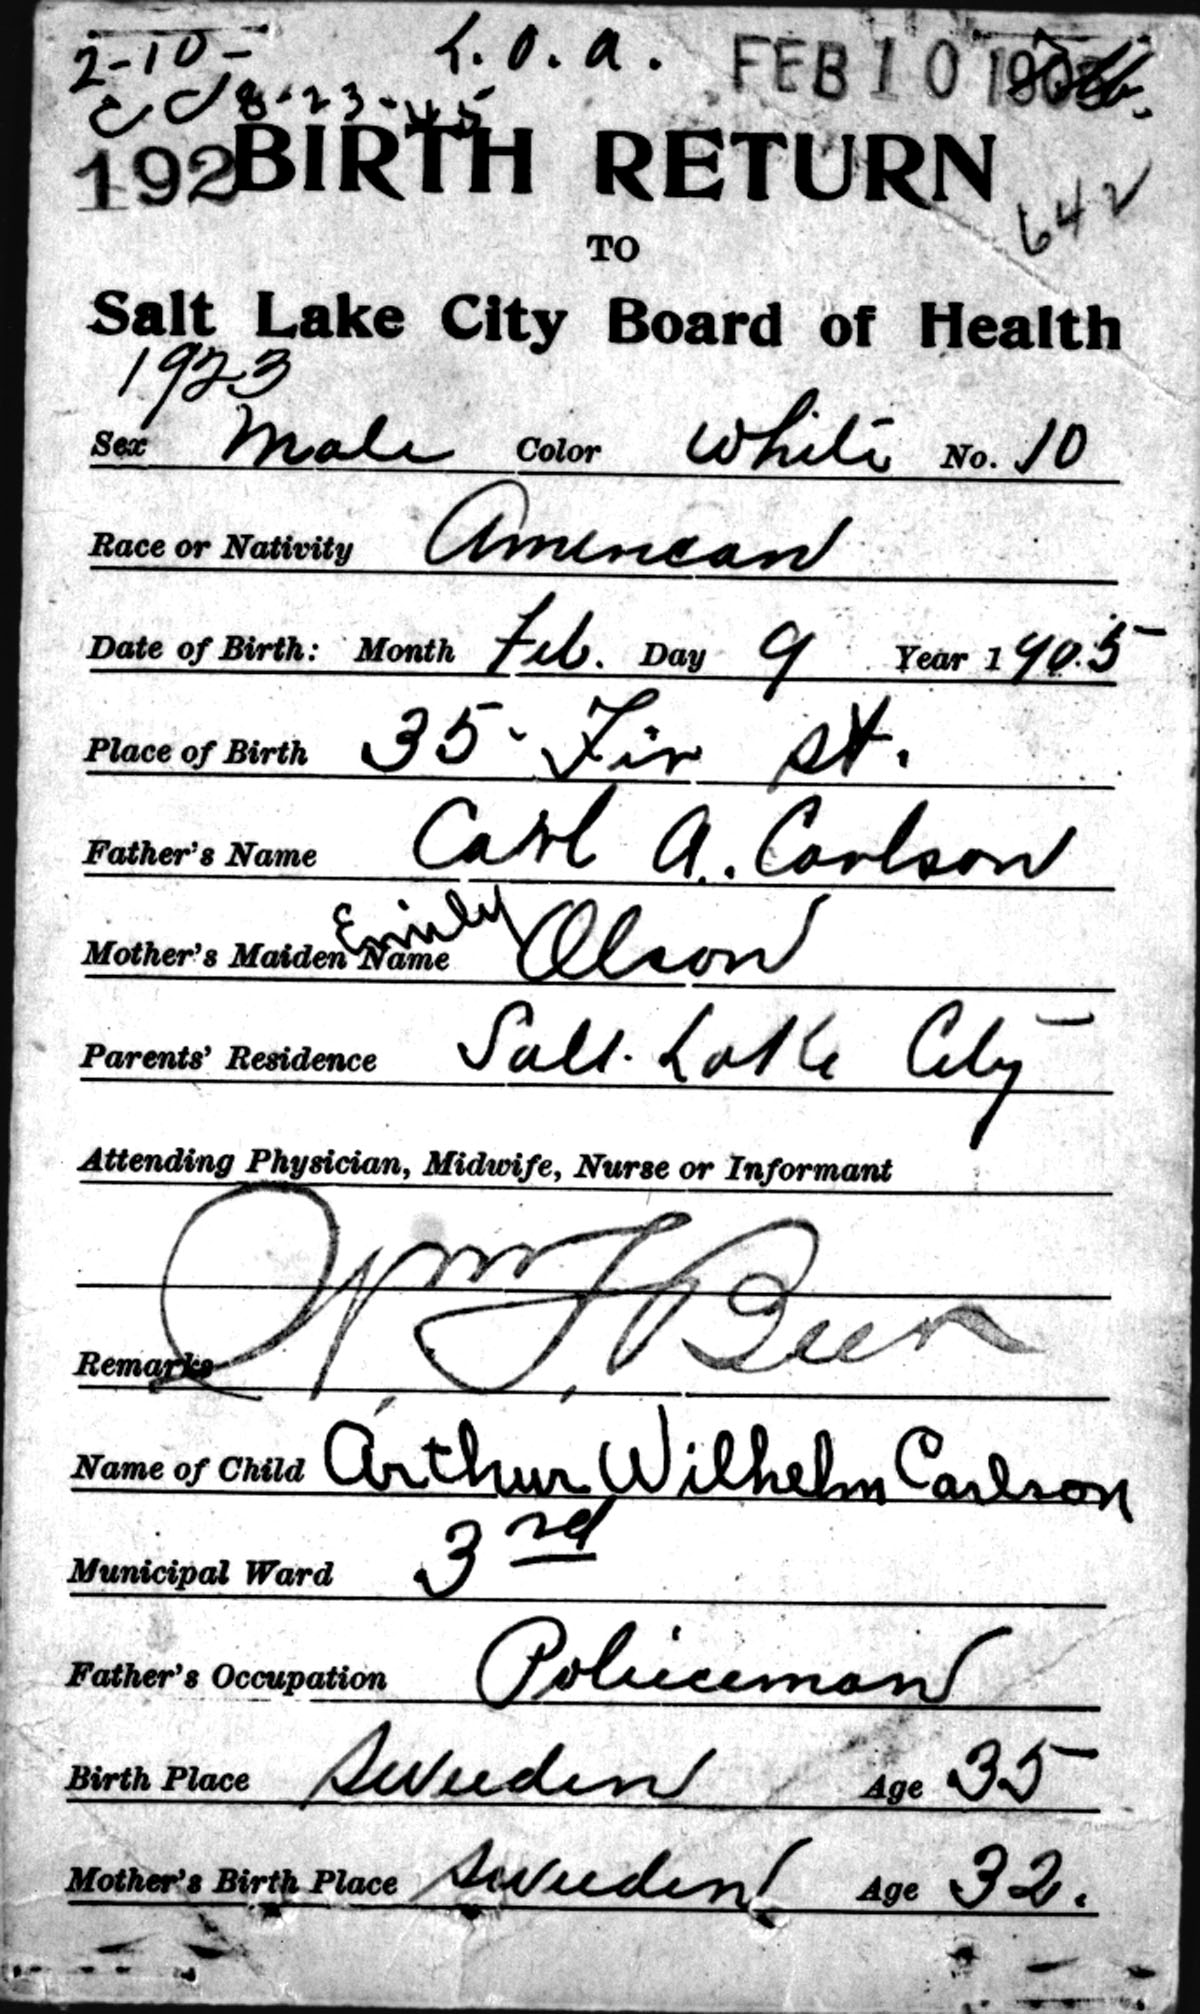 2-10- L. O. A. FEB 10 1905
CC 8-23-45
192 BIRTH RETURN
642
TO
Salt Lake City Board of Health
1923
Sex Male Color White No. 10
Race or Nativity American
Date of Birth: Month Feb. Day 9 Year 1905
Place of Birth 35 Fir St.
Father's Name Carl A. Carlson
Mother's Maiden Name Emily Olson
Parents' Residence Salt Lake City
Attending Physician, Midwife, Nurse or Informant
Wm F Beer
Remarks
Name of Child Arthur Wilhelm Carlson
Municipal Ward 3rd
Father's Occupation Policeman
Birth Place Sweeden Age 35
Mother's Birth Place Sweeden Age 32.